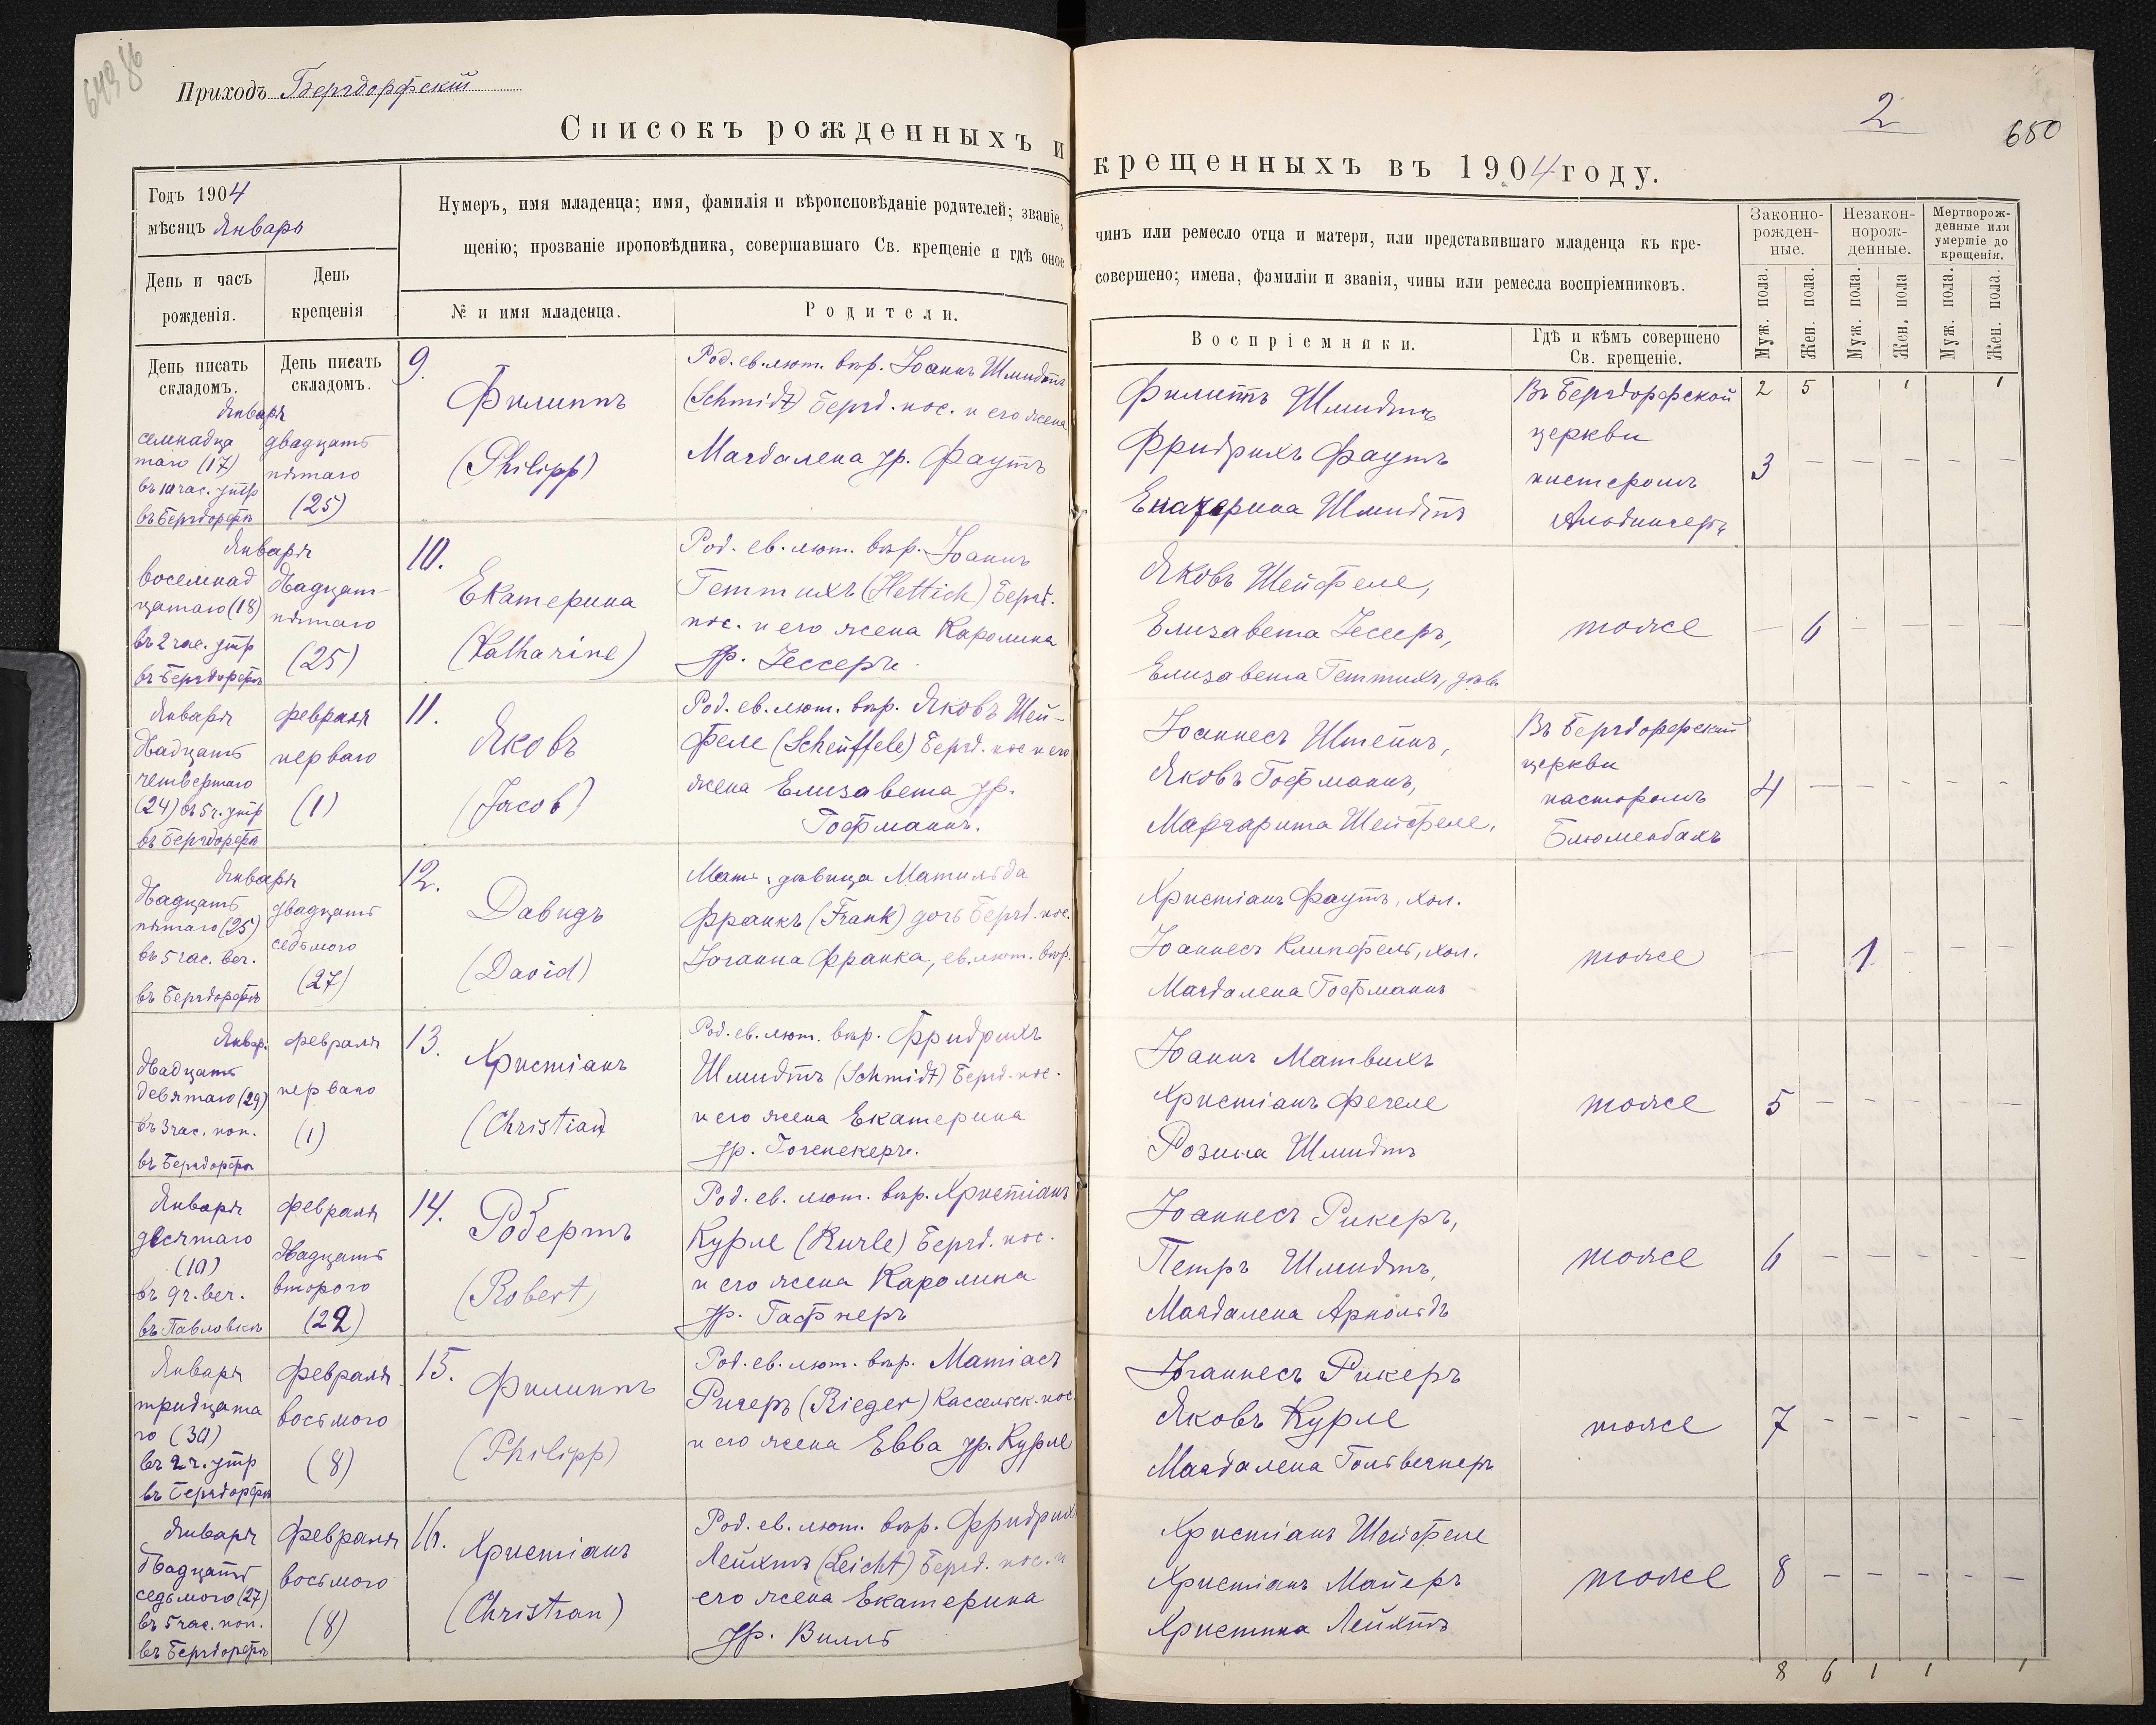 649 86
Приходъ Бергдорфскій
Списокъ рожденныхъ и
Годъ 1904
мѣсяцъ Январь
Нумеръ, имя младенца; имя, фамилія и вѣроисповѣданіе родителей; званіе,
щенію; прозваніе проповѣдника, совершавшаго Св. крещеніе и гдѣ оное
День и часъ рожденія.
День крещенія
№ и имя младенца.
Родители.
День писать складомъ.
День писать складомъ.
Января
семнадца
таго (17)
въ 10 час. утр
въ Бергдорфѣ
двадцать
пятаго
(25)
9.
Филиппъ
(Philipp)
Род. ев. лют. вѣр. Іоаннъ Шмидтъ
(Schmidt) Бергд. пос. и его жена
Магдалена ур. Фаутъ
Января
восемнад
цатаго (18)
въ 2 час. утр
въ Бергдорфѣ
двадцать
пятаго
(25)
10.
Екатерина
(Katharine)
Род. ев. лют. вѣр. Іоаннъ
Геттихъ (Hettich) Бергд.
пос. и его жена Каролина
ур. Зессеръ.
Января
двадцать
четвертаго
(24) въ 5 ч. утр
въ Бергдорфѣ
февраля
перваго
(1)
11.
Яковъ
(Jacob)
Род. ев. лют. вѣр. Яковъ Шей-
феле (Scheuffele) Бергд. пос и его
жена Елизавета ур.
Гофманнъ.
Января
двадцать
пятаго (25)
въ 5 час. веч.
въ Бергдорфѣ
двадцать
седьмого
(27)
12.
Давидъ
(David)
Мать: дѣвица Матильда
Франкъ (Frank) дочь Бергд. пос.
Іоганна Франка, ев. лют. вѣр.
Январ.
двадцать
девятаго (29)
въ 3 час. поп.
въ Бергдорфѣ
февраля
перваго
(1)
13.
Христіанъ
(Christian)
Род. ев. лют. вѣр. Фридрихъ
Шмидтъ (Schmidt) Бергд. пос.
и его жена Екатерина
ур. Гогенекеръ.
Января
десятаго
(10)
въ 9 ч. веч.
въ Павловкѣ
февраля
двадцать
второго
(22)
14.
Робертъ
(Robert)
Род. ев. лют. вѣр. Христіанъ
Курле (Kurle) Бергд. пос.
и его жена Каролина
ур. Гафнеръ
Января
тридцата
го (30)
въ 2 ч. утр
въ Бергдорфѣ
февраля
восьмого
(8)
15.
Филиппъ
(Philipp)
Род. ев. лют. вѣр. Матіасъ
Ригеръ (Rieger) Кассельск. пос
и его жена Евва ур. Курле
Января
двадцать
седьмого (27)
въ 5 час. поп.
въ Бергдорфѣ
февраля
восьмого
(8)
16.
Христіанъ
(Christian)
Род. ев. лют. вѣр. Фридрихъ
Лейхтъ (Leicht) Бергд. пос. и
его жена Екатерина
ур. Вилль
2
650
крещенныхъ въ 1904 году.
чинъ или ремесло отца и матери, или представившаго младенца къ кре-
совершено; имена, фамиліи и званія, чины или ремесла воспріемниковъ.
Воспріемники.
Гдѣ и кѣмъ совершено Св. крещеніе.
Законно-рожден-ные.
Незакон-норож-денные.
Мертворож-денные или умершіе до крещенія.
Муж. пола.
Жен. пола.
Муж. пола.
Жен. пола
Муж. пола.
Жен. пола.
Филиппъ Шмидтъ
Фридрихъ Фаутъ
Екатерина Шмидтъ
Въ Бергдорфской
церкви
пастеромъ
Альдингеръ
2 5 1 1
3 – – – – –
Яковъ Шейфеле,
Елизавета Зессеръ,
Елизавета Геттихъ, дѣв.
тоже
– 6 – – – –
Іоаннесъ Штейнъ,
Яковъ Гофманнъ,
Маргарита Шейфеле.
Въ Бергдорфской
церкви
пасторомъ
Блюменбахъ
4 – – – – –
Христіанъ Фаутъ, хол.
Іоаннесъ Клипфель, хол.
Магдалена Гофманнъ
тоже
– 1 – – –
Іоаннъ Матвихъ
Христіанъ Фегеле
Розина Шмидтъ
тоже
5 – – – – –
Іоаннесъ Рикеръ,
Петръ Шмидтъ,
Магдалена Арнольдъ
тоже
6 – – – – –
Іоганнесъ Рикеръ
Яковъ Курле
Магдалена Гольвегнеръ
тоже
7 – – – – –
Христіанъ Шейфеле
Христіанъ Майеръ
Христина Лейхтъ
тоже
8 – – – – –
8 6 1 1 1